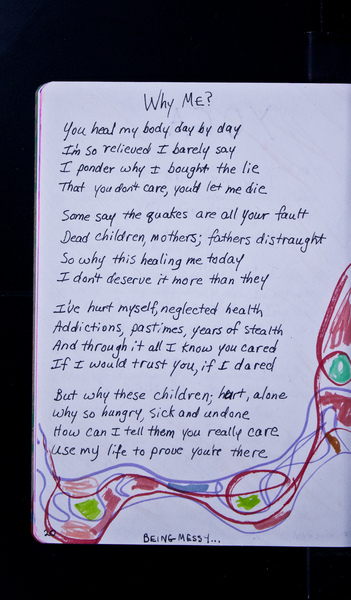 Why Me?
You heal my body day by day
I'm so relieved I barely say
I ponder why I bought the lie
That you don't care, you'd let me die
Some say the quakes are all your fault
Dead children, mothers; fathers distraught
So why this healing me today
I don't deserve it more than they
I've hurt myself, neglected health
Addictions, pastimes, years of stealth
And through it all I know you cared
If I would trust you, if I dared
But why these children; hurt, alone
why so hungry, sick and undone
How can I tell them you really care
Use my life to prove you're there
20
BEING MESSY...